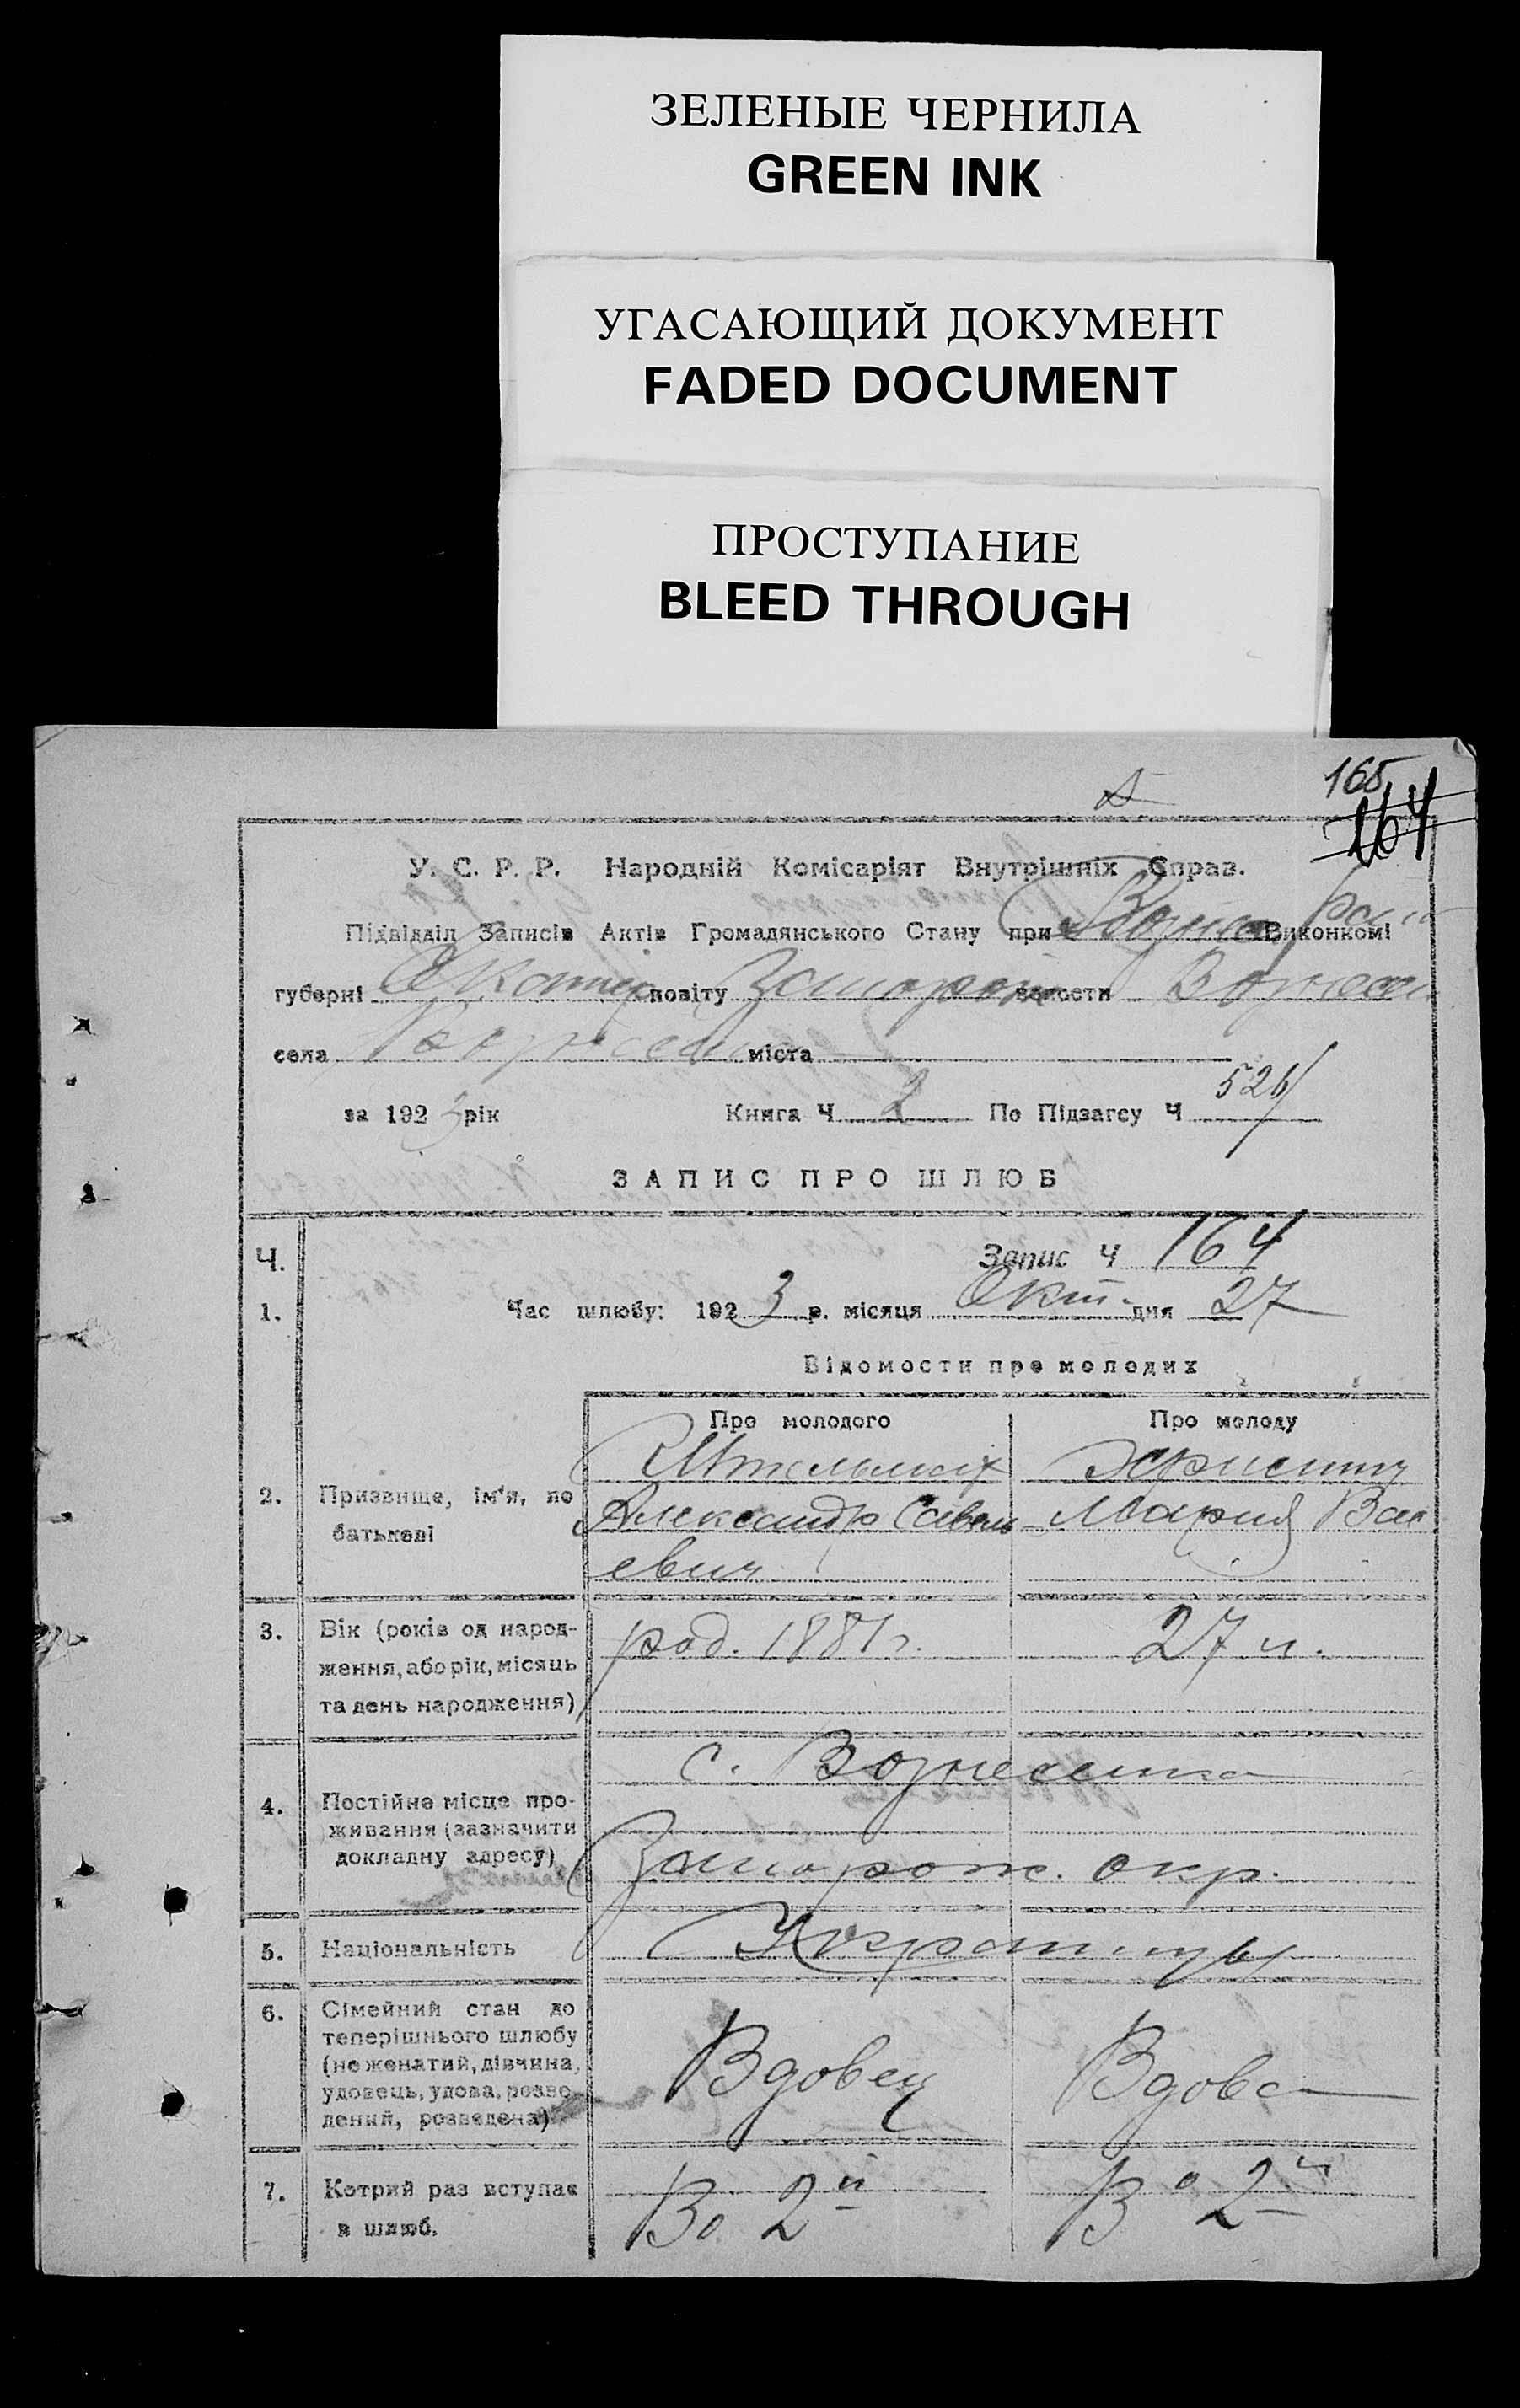 ЗЕЛЕНЫЕ ЧЕРНИЛА
GREEN INK
УГАСАЮЩИЙ ДОКУМЕНТ
FADED DOCUMENT
ПРОСТУПАНИЕ
BLEED THROUGH
165
164
У. С. Р. Р. Народній Комісаріят Внутрішніх Справ.
Підвідділ Записів Актів Громадянського Стану при Виконкомі
губерні повіту волости
села міста
за 1923 рік Книга Ч 2 По Підзагсу Ч
ЗАПИС ПРО ШЛЮБ
Ч. Запис Ч 164
1. Час шлюбу: 1923 р. місяця Окт. дня 27
Відомости про молодих
Про молодого Про молоду
2. Призвище, ім'я, по батькові
Александр Савель Мария Вас
евич
3. Вік (років од народ-
ження, або рік, місяць
та день народження)
род. 1881 г. 27 л.
4. Постійне місце про-
живання (зазначити
докладну адресу)
с. Вознесенка
Запорож. окр.
5. Національність
6. Сімейний стан до
теперішнього шлюбу
(не женатий, дівчина,
удовець, удова, розве-
дений, розведена)
Вдовец Вдова
7. Котрий раз вступає
в шлюб.
Во 2й Во 2й